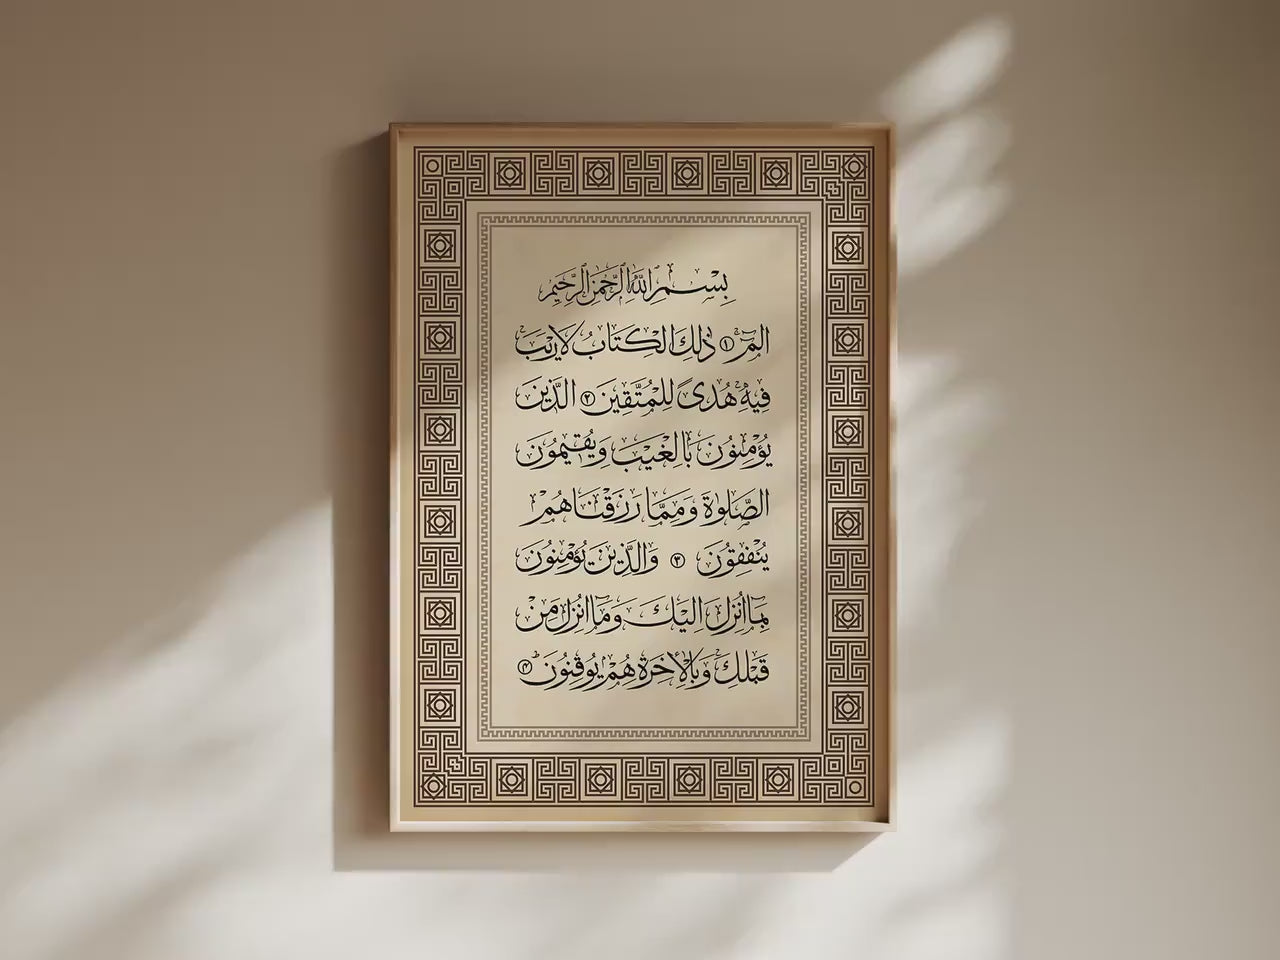 بِسْمِ اللّٰهِ الرَّحْمٰنِ الرَّحِيمِ
الٓمٓ ۝١ ذٰلِكَ الْكِتَابُ لَا رَيْبَ
فِيهِ هُدًى لِلْمُتَّقِينَ ۝٢ الَّذِينَ
يُؤْمِنُونَ بِالْغَيْبِ وَيُقِيمُونَ
الصَّلٰوةَ وَمِمَّا رَزَقْنَاهُمْ
يُنْفِقُونَ ۝٣ وَالَّذِينَ يُؤْمِنُونَ
بِمَٓا اُنْزِلَ اِلَيْكَ وَمَٓا اُنْزِلَ مِنْ
قَبْلِكَ وَبِالْاٰخِرَةِ هُمْ يُوقِنُونَ ۝٤